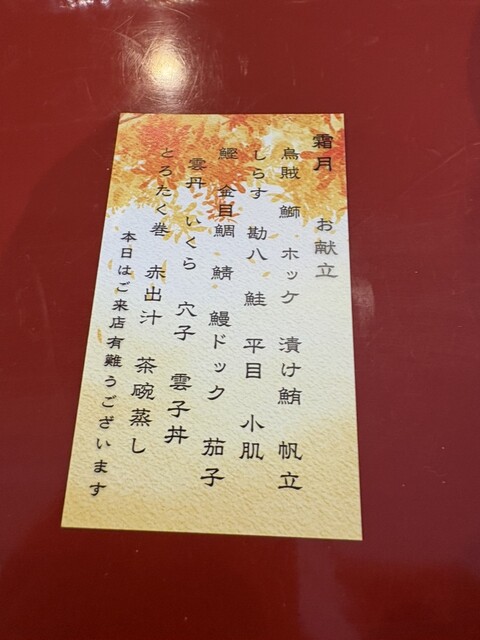 霜月　お献立
烏賊　鰤　ホッケ　漬け鮪　帆立
しらす　勘八　鮭　平目　小肌
鰹　金目鯛　鯖　鰻ドック　茄子
雲丹　いくら　穴子　雲子丼
とろたく巻　赤出汁　茶碗蒸し
本日はご来店有難うございます